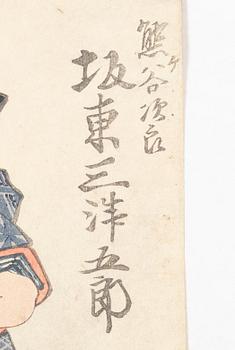 熊ヶ谷次郎
坂東三津五郎